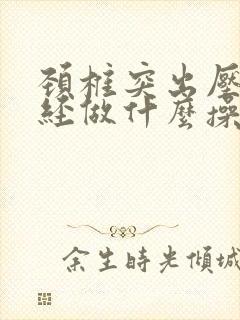 頚椎突出壓
經做什麼操
余生時光傾城